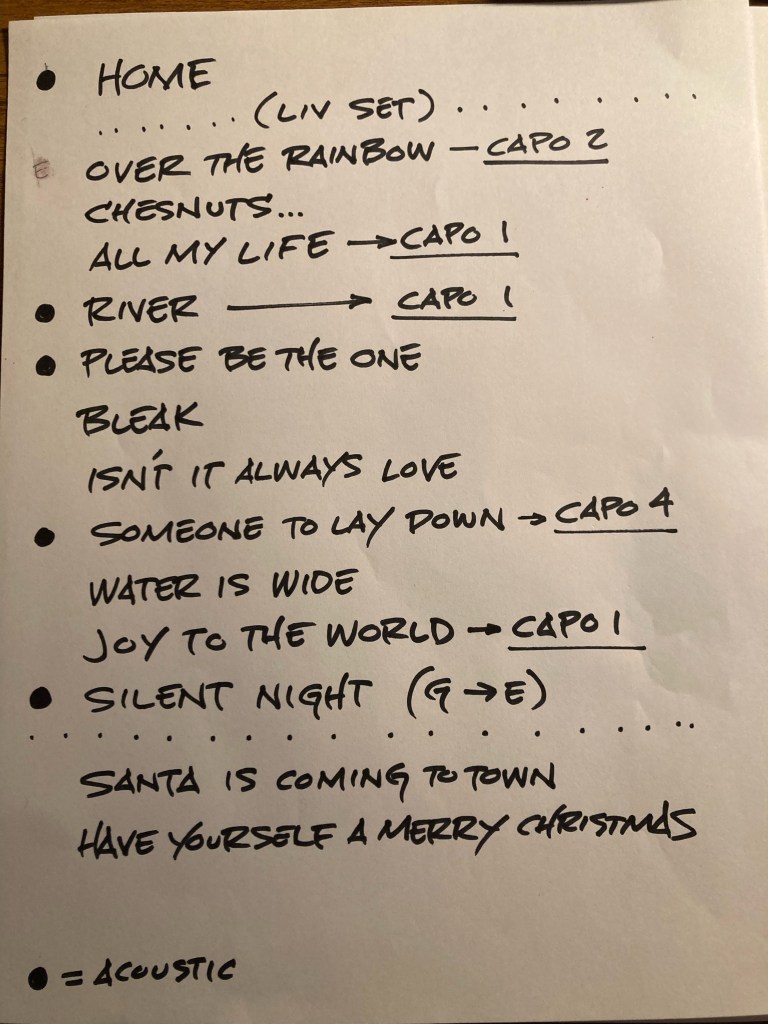 • HOME
...... (LIV SET) .......
OVER THE RAINBOW — CAPO 2
CHESNUTS...
ALL MY LIFE → CAPO 1
• RIVER → CAPO 1
• PLEASE BE THE ONE
BLEAK
ISN'T IT ALWAYS LOVE
• SOMEONE TO LAY DOWN → CAPO 4
WATER IS WIDE
JOY TO THE WORLD → CAPO 1
• SILENT NIGHT (G → E)
SANTA IS COMING TO TOWN
HAVE YOURSELF A MERRY CHRISTMAS
• = ACOUSTIC